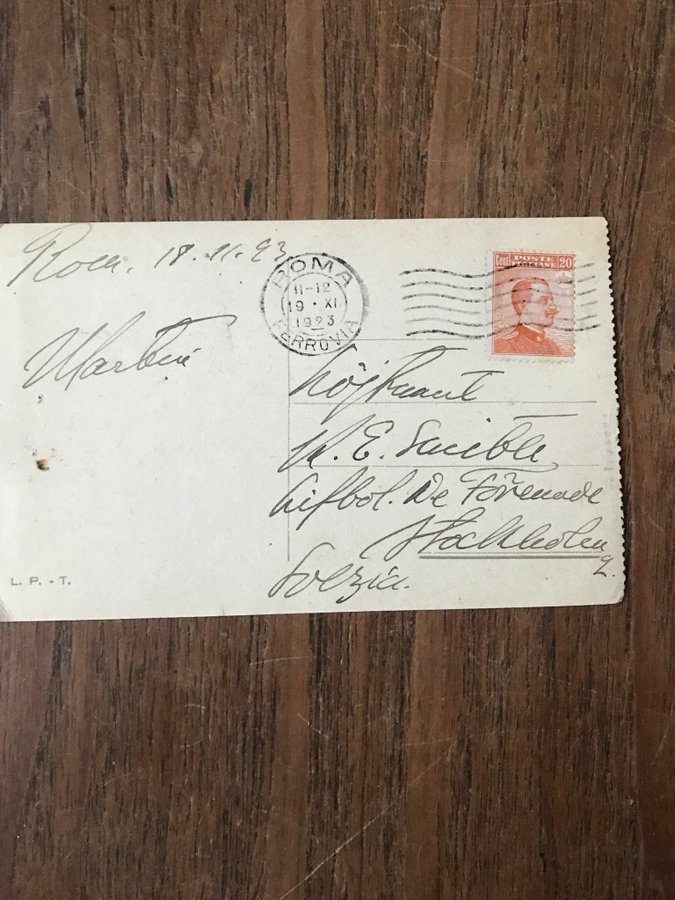 Rom. 18.11.23
ROMA
11-12
19 · XI
1923
FERROVIA
Cent. POSTE 20
ITALIANE
Martin
Löjtnant
K. E. Smith
Lifbol. De Förenade
Stockholm
2.
Svezia.
L. P. - T.